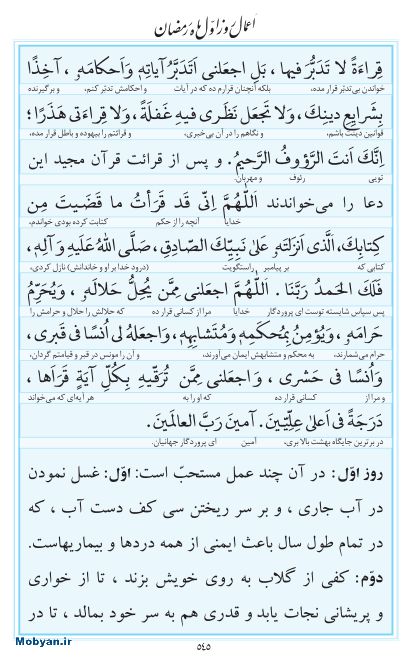 اَعمال روز اوّل ماه رمضان
قِراءَةً لا تَدَبُّرَ فيها ، بَلِ اجعَلنى اَتَدَبَّرُ آياتِهِ وَاَحكامَهُ ، آخِذًا
خواندن بی‌تدبّر قرار مده، بلکه آنچنان قرارم ده که در آیات و احکامش تدبّر کنم، و برگیرنده
بِشَرايِعِ دينِكَ، وَلا تَجعَل نَظَرى فيهِ غَفلَةً، وَلا قِراءَتى هَذَرًا؛
قوانین دینت باشم، و نگاهم را در آن بی‌خبری، و قرائتم را بیهوده و باطل قرار مده،
اِنَّكَ اَنتَ الرَّؤُوفُ الرَّحيمُ. و پس از قرائت قرآن مجید این
تویی رئوف و مهربان.
دعا را می‌خواندند اَللّهُمَّ اِنّى قَد قَرَأتُ ما قَضَيتَ مِن
خدایا آنچه را از حکم کتابت کرده بودی خواندم،
كِتابِكَ، الَّذى اَنزَلتَهُ عَلىٰ نَبِيِّكَ الصّادِقِ، صَلَّى اللهُ عَلَيهِ وَآلِهِ،
کتابی که بر پیامبر راستگویت (درود خدا بر او و خاندانش) نازل کردی،
فَلَكَ الحَمدُ رَبَّنا . اَللّهُمَّ اجعَلنى مِمَّن يُحِلُّ حَلالَهُ ، وَيُحَرِّمُ
پس سپاس شایسته توست ای پروردگار خدایا مرا از کسانی قرار ده که حلالش را حلال و حرامش را
حَرامَهُ، وَيُؤمِنُ بِمُحكَمِهِ وَمُتَشابِهِهِ، وَاجعَلهُ لى اُنسًا فى قَبرى،
حرام می‌شمارند، به محکم و متشابهش ایمان می‌آورند، و آن را مونس در قبر و قیامتم گردان،
وَاُنسًا فى حَشرى ، وَاجعَلنى مِمَّن تُرَقّيهِ بِكُلِّ آيَةٍ قَرَاَها ،
و مرا از کسانی قرار ده که او را به هر آیه‌ای که می‌خواند
دَرَجَةً فى اَعلىٰ عِلِّيّينَ. آمينَ رَبَّ العالَمينَ.
در برترین جایگاه بهشت بالا بری، آمین ای پروردگار جهانیان.
روز اوّل: در آن چند عمل مستحبّ است: اوّل: غسل نمودن
در آب جاری ، و بر سر ریختن سی کف دست آب ، که
در تمام طول سال باعث ایمنی از همه دردها و بیماریهاست.
دوّم: کفی از گلاب به روی خویش بزند ، تا از خواری
و پریشانی نجات یابد و قدری هم به سر خود بمالد ، تا در
Mobyan.ir
٥٤٥